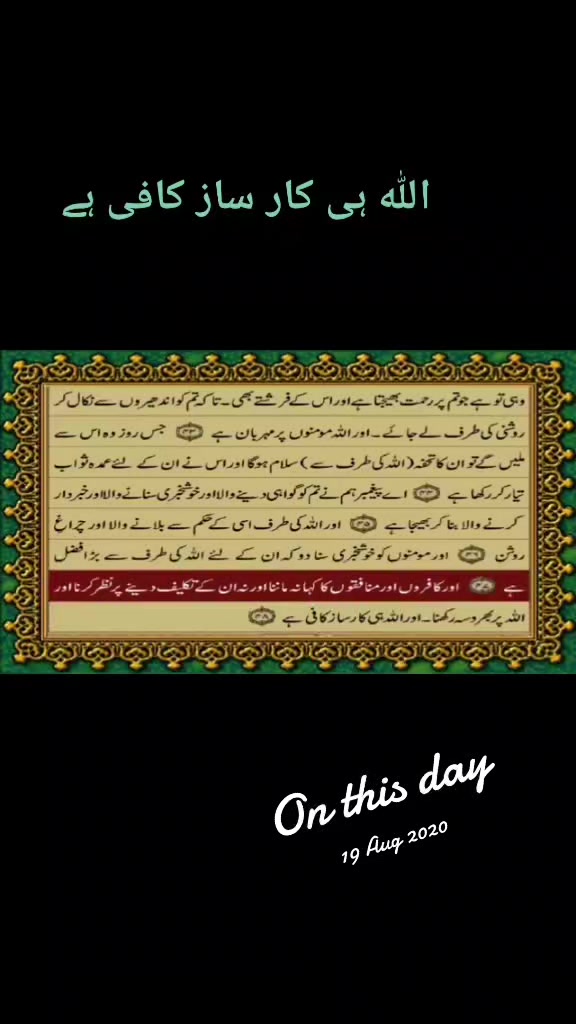 اللہ ہی کار ساز کافی ہے
وہی تو ہے جو تم پر رحمت بھیجتا ہے اور اس کے فرشتے بھی۔ تاکہ تم کو اندھیروں سے نکال کر
روشنی کی طرف لے جائے۔ اور اللہ مومنوں پر مہربان ہے ۴۳ جس روز وہ اس سے
ملیں گے تو ان کا تحفہ (اللہ کی طرف سے) سلام ہوگا اور اس نے ان کے لئے عمدہ ثواب
تیار کر رکھا ہے ۴۴ اے پیغمبر ہم نے تم کو گواہی دینے والا اور خوشخبری سنانے والا اور خبردار
کرنے والا بنا کر بھیجا ہے ۴۵ اور اللہ کی طرف اسی کے حکم سے بلانے والا اور چراغِ
روشن ۴۶ اور مومنوں کو خوشخبری سنا دو کہ ان کے لئے اللہ کی طرف سے بڑا فضل
ہے ۴۷ اور کافروں اور منافقوں کا کہا نہ ماننا اور نہ ان کے تکلیف دینے پر نظر کرنا اور
اللہ پر بھروسہ رکھنا۔ اور اللہ ہی کارساز کافی ہے ۴۸
On this day
19 Aug 2020